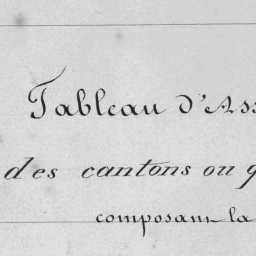 Tableau d'Ass
des cantons ou q
composant la